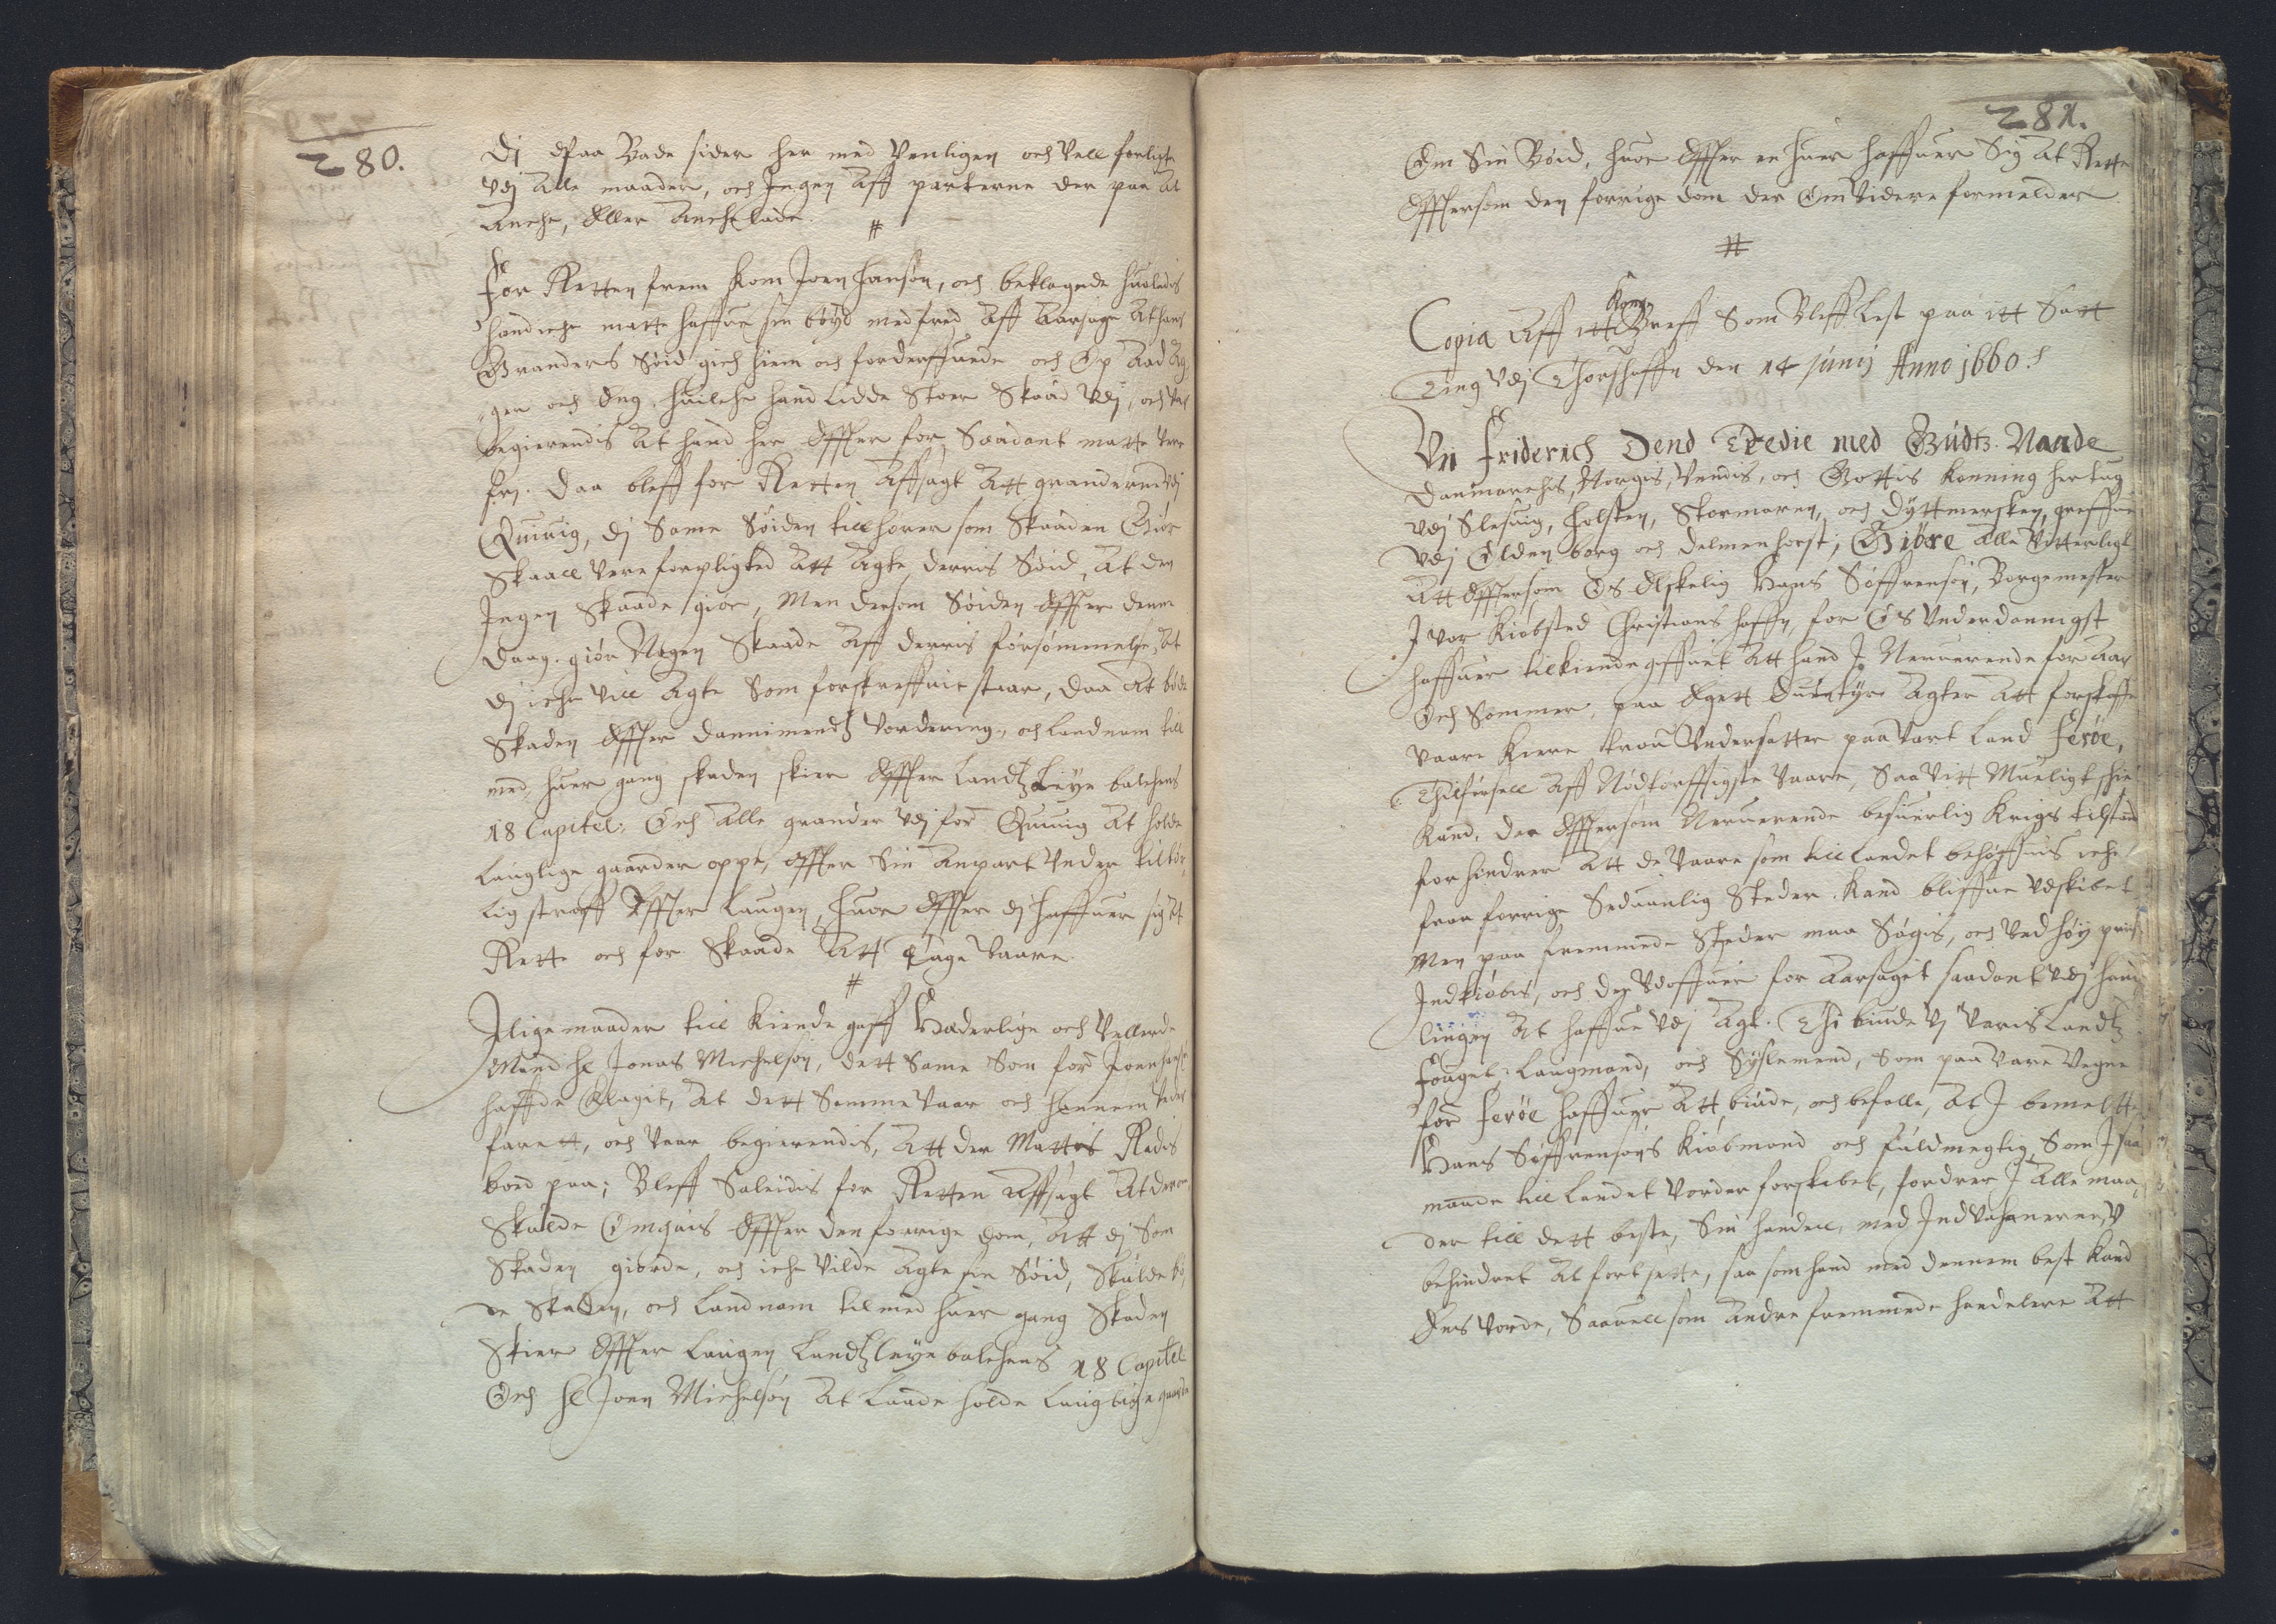 280.
Dj Paa Bade sider her med Venligen och Vell forligte
Vdj Alle maader, och Ingen Aff parterne der paa At
Anche, Eller Anche lade.
#
For Retten frem kom Joen Hansøn, och beklagede huorledis
hand iche matte haffue sin bøyd med fred Aff Aarsage At hans
Granders Søid gich hiem och forderffuede och Op Aad Ag,
gen och Eng, huilche hand Lidde Stoer Skaad Vdj, och Var
begierendis At hand her Effter for Saadant matte Vere
frj. Daa bleff for Retten Affsagt Att granderne Vdj
Quiuig, dj Same Søiden tillhører som Skaaden Giør
Skaall Vere forpligted Att Agte derris Søid, At den
Ingen Skaade giør, Men dersom Søiden Effter denne
Daag giør Nogen Skaade Aff derris forsømmelse, At
dj iche Vill Agte Som forskreffuit staar, daa At bøde
Skaden Effter Dannimendtz Vordering, och Landnam till
med, huer gang skaden skier Effter Landtz Leye balchens
18 Capitel: Och Alle grander Vdj for Quiuig At holde
Lauglige gaarder oppe, Effter Sin Anpart Vnder tilbør,
lig straff Effter Laugen, huor Effter dj haffuer sig At
Rette och for Skaade Att Tage Vaare.
#
Jlige maader till kiende gaff Hæderlige och Vellerde
Mand hr Jonas Michelsøn, dett Same Som for Joen Hansøn
haffde Klagit, At dett Samme Vaar och hannem Veder
farett, och Vaar begierendis, Att der Mattis Radis
boed paa; Bleff Saleidis for Retten Affsagt At der om
Skulde Omgais Effter den forrige dom, Att dj Som
Skaden giorde, och iche Vilde Agte sin Søid, Skulde bø,
de Skaden, och Landnam til med huer gang Skaden
Skier Effter Laugen Landtzleye balchens 18 Capitel
Och hr Joen Michelsøn At Laade holde Lauglige gaarde
281.
Om Sin Bøid, huor Effter en huer haffuer Sig At Rette
Effttersom den forrige dom der Om Videre formelder.
#
Copia Aff itt Kong: Breff Som Bleff Lest paa itt Satt
Ting Vdj Thorshaffn den 14 Junij Anno 1660.
Vii Friderich Dend Tredie med Gudtz Naade
Danmarchis, Norgis, Vendis, och Gottis Konning hertug
Vdj Slesuig, Holsten, Stormaren, och Dyttmersken, greffue
Vdj Oldenborg och Delmenhorst; Giøre Alle Vitterligt
Att Efftersom Os Elskelig Hans Søffrensøn, Borgemester
I Vor Kiøbsted Christians haffn, for Os Vnderdannigst
haffuer tilkiende giffuet Att hand I Neruerende for Aar
Och Sommer, paa Eget Euentyr Agter Att forskaffe
Vaare kiere troe Vndersatter paa Vort Land Ferøe,
Tilførsell Aff Nødtorfftigste Vaare, Saa Vitt Mueligt skie
kand, der Efftersom Neruerende besuerlig Krigs tilstand
forhindrer Att de Vaare som till Landet behøffuis iche
fraa forrige Seduanlig Steder kand bliffue Vdskibet,
Men paa fremmede Steder maa Søgis, och Ved høy priis
Indkiøbis, och der Vdoffuer for Aarsaget saadant Vdj hand
lingen At haffue Vdj Agt. Thi biude Vj Voris Landtz
Fouget, Laugmand, och Syslemend, Som paa Vare Vegne
for Ferøe haffuer Att biude, och befalle, At I bemelte
Hans Søffrensøns Kiøbmand och Fuldmegtig, Som I saa
maade till Landet Vorder forskibet, fordrer I Alle maa,
der till dett beste, Sin handell, med Indvohnerne V
behindret At fortsette, saa som hand med dennem best kand
Ens Vorde, Saauell som Andre fremmede handelere Att